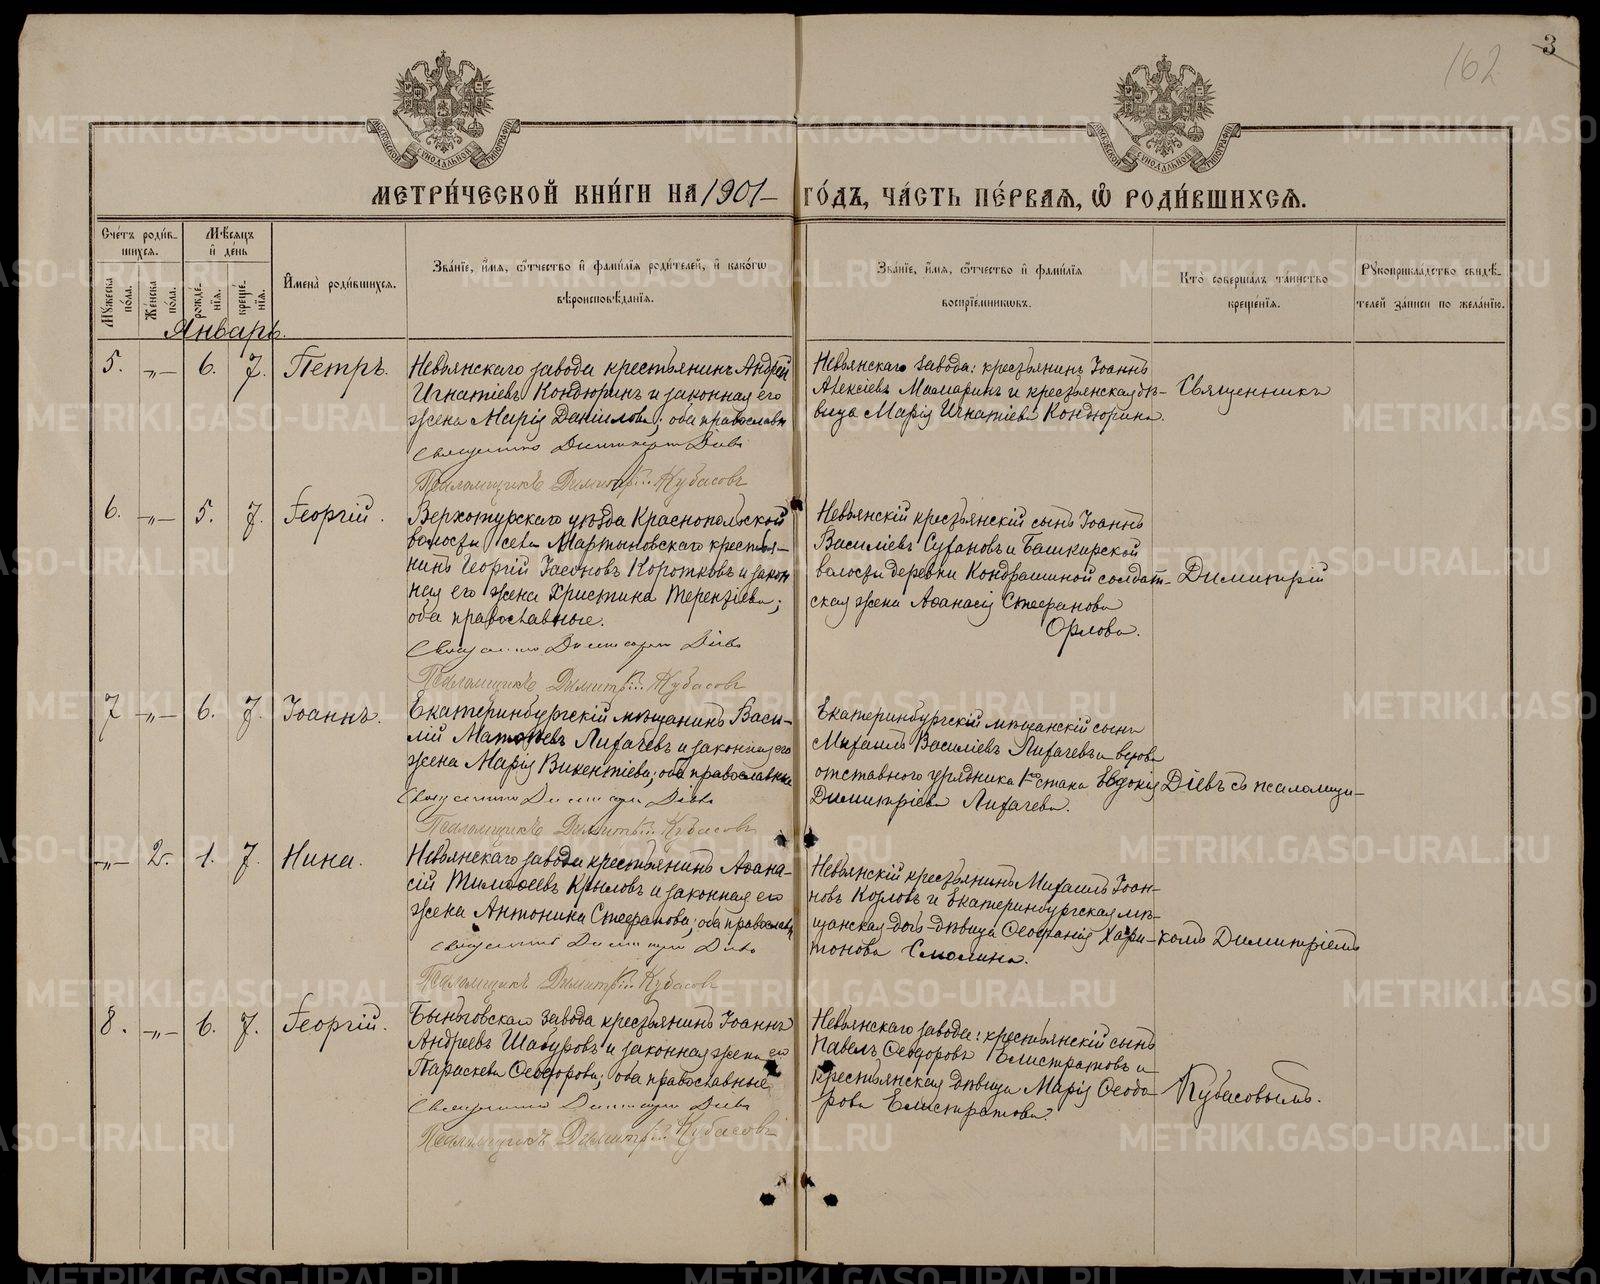 162
3
МОСКОВСКОЙ СѴНОДАЛЬНОЙ ТИПОГРАФІИ
МОСКОВСКОЙ СѴНОДАЛЬНОЙ ТИПОГРАФІИ
МЕТРИ́ЧЕСКОЙ КНИ́ГИ НА 1901 ГО́ДЪ, ЧА́СТЬ ПЕ́РВАѦ, Ѽ РОДИ́ВШИХСѦ.
Сче́тъ роди́вшихся.
Мꙋжеска по́ла.
Женска по́ла.
Мѣ́сяцъ и҆ де́нь
рожде́нїя.
креще́нїя.
И҆мена̀ роди́вшихся.
Зва́нїе, и҆́мя, ѻ҆́тчество и҆ фами́лїя роди́телей, и҆ како́гѡ
вѣроисповѣ́данїя.
Зва́нїе, и҆́мя, ѻ҆́тчество и҆ фами́лїя
воспрїе́мникѡвъ.
Кто̀ соверша́лъ та́инство
креще́нїя.
Рꙋкоприкла́дство свидѣ́-
телей за́писи по жела́нїю.
Январь.
5. -"- 6. 7. Петръ.
Невьянскаго завода крестьянинъ Андрей
Игнатіевъ Кондюринъ и законная его
жена Марія Даніилова; оба православн
Священникъ Димитрій Діевъ
Псаломщикъ Димитрій Кубасовъ
Невьянскаго завода: крестьянинъ Іоаннъ
Алексіевъ Мамаринъ и крестьянская дѣ-
вица Марія Игнатіева Кондюрина.
Священникъ
6. -"- 5. 7. Георгій.
Верхотурскаго уѣзда Краснопольской
волости села Мартыновскаго крестья-
нинъ Георгій Іасоновъ Коротковъ и закон
ная его жена Христина Терентіева;
оба православные.
Священникъ Димитрій Діевъ
Псаломщикъ Димитрій Кубасовъ
Невьянскій крестьянскій сынъ Іоаннъ
Василіевъ Сухановъ и Башкирской
волости деревни Кондрашиной солдат-
ская жена Аѳанасія Стефанова
Орлова.
Димитрій
7 -"- 6. 7. Іоаннъ.
Екатеринбургскій мѣщанинъ Васи-
лій Матѳіевъ Лихачевъ и законная его
жена Марія Викентіева; оба православные
Священникъ Димитрій Діевъ
Псаломщикъ Димитрій Кубасовъ
Екатеринбургскій мѣщанскій сынъ
Михаилъ Василіевъ Лихачевъ и вдова
отставного урядника 1го стана Евдокія
Димитріева Лихачева.
Діевъ съ псаломщи-
-"- 2. 1. 7. Нина.
Невьянскаго завода крестьянинъ Аѳана-
сій Тимоѳеевъ Крыловъ и законная его
жена Антонина Стефанова; оба православн
Священникъ Димитрій Діевъ
Псаломщикъ Димитрій Кубасовъ
Невьянскій крестьянинъ Михаилъ Іоан-
новъ Козловъ и Екатеринбургская мѣ-
щанская дочь-дѣвица Ѳеофанія Хари-
тонова Смолина.
комъ Димитріемъ
8. -"- 6. 7. Георгій.
Быньговскаго завода крестьянинъ Іоаннъ
Андреевъ Шабуровъ и законная жена его
Параскева Ѳеодорова; оба православные
Священникъ Димитрій Діевъ
Псаломщикъ Димитрій Кубасовъ
Невьянскаго завода: крестьянскій сынъ
Павелъ Ѳеодоровъ Елистратовъ и
крестьянская дѣвица Марія Ѳеодо-
рова Елистратова.
Кубасовымъ.
METRIKI.GASO-URAL.RU